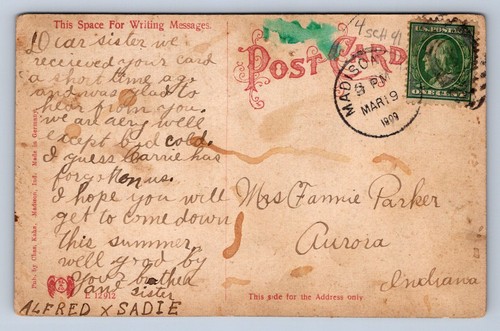 This Space For Writing Messages.
Dear sister we
received your card
a short time ago
and was glad to
hear from you.
we are aery well
except bad cold.
I guess Carrie has
forgotten us.
I hope you will
get to come down
this summer
well good by
your brother
and sister
ALFRED X SADIE
Pub. by Chas. Kahn, Madison, Ind. Made in Germany.
E 12912
POST CARD
MADISON
8 PM
MAR 19
1909
U.S. POSTAGE
ONE CENT
Mrs Fannie Parker
Aurora
Indiana
This side for the Address only